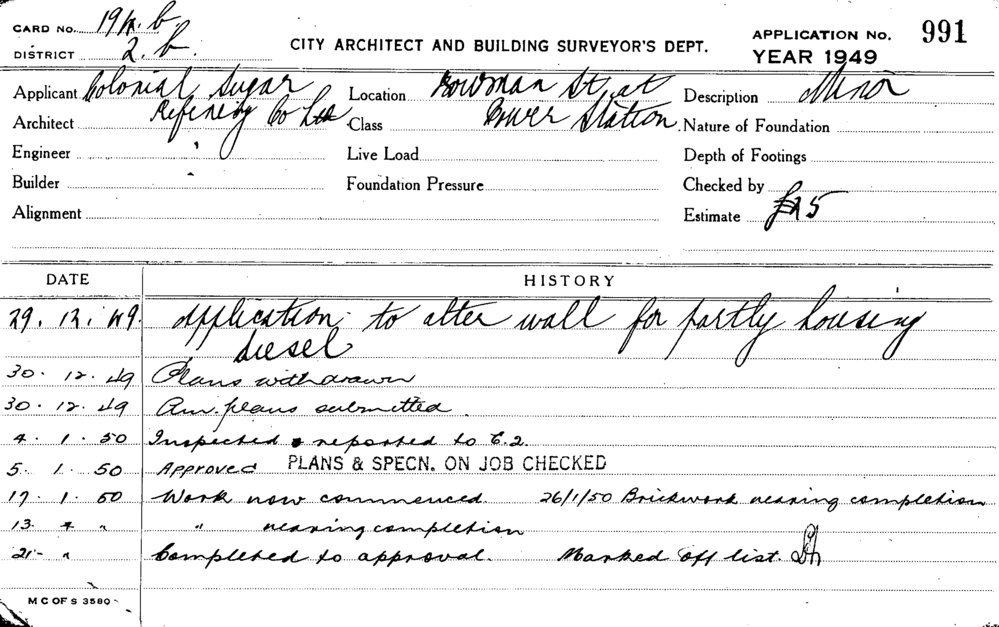 CARD NO. 19 b.
DISTRICT 2. b.
CITY ARCHITECT AND BUILDING SURVEYOR'S DEPT.
APPLICATION No. 991
YEAR 1949
Applicant Colonial Sugar Refinery Co Ltd
Location Bowman St, at Power Station
Description Minor
Architect
Class
Nature of Foundation
Engineer
Live Load
Depth of Footings
Builder
Foundation Pressure
Checked by
Alignment
Estimate
DATE HISTORY
29. 12. 49. Application to alter wall for partly housing
diesel
30. 12. 49 Plans withdrawn
30. 12. 49 Am. plans submitted.
4. 1. 50 Inspected & reported to C.2.
5. 1. 50 Approved PLANS & SPECN. ON JOB CHECKED
17. 1. 50 Work now commenced 26/1/50 Brickwork nearing completion
13 " " nearing completion
21- " Completed to approval. Marked off list.
M C OF S 3580